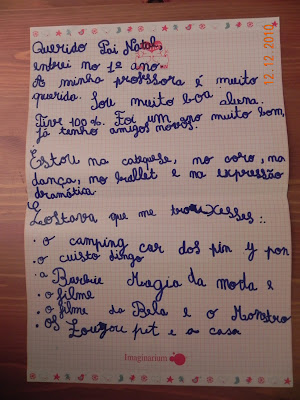 Querido Pai Natal,
entrei no 1º ano.
A minha professora é muito
querida. Sou muito boa aluna.
Tive 100%. Foi um ano muito bom,
já tenho amigos novos.
Estou na catequese, no coro, na
dança, no ballet e na expressão
dramática.
Gostava que me trouxesses:.
• o camping car dos pin y pon
• o cuisto dingo
• a Barbie Magia da moda e
• o filme
• o filme da Bela e o Monstro
• Os pet e a casa
Imaginarium
12.12.2010